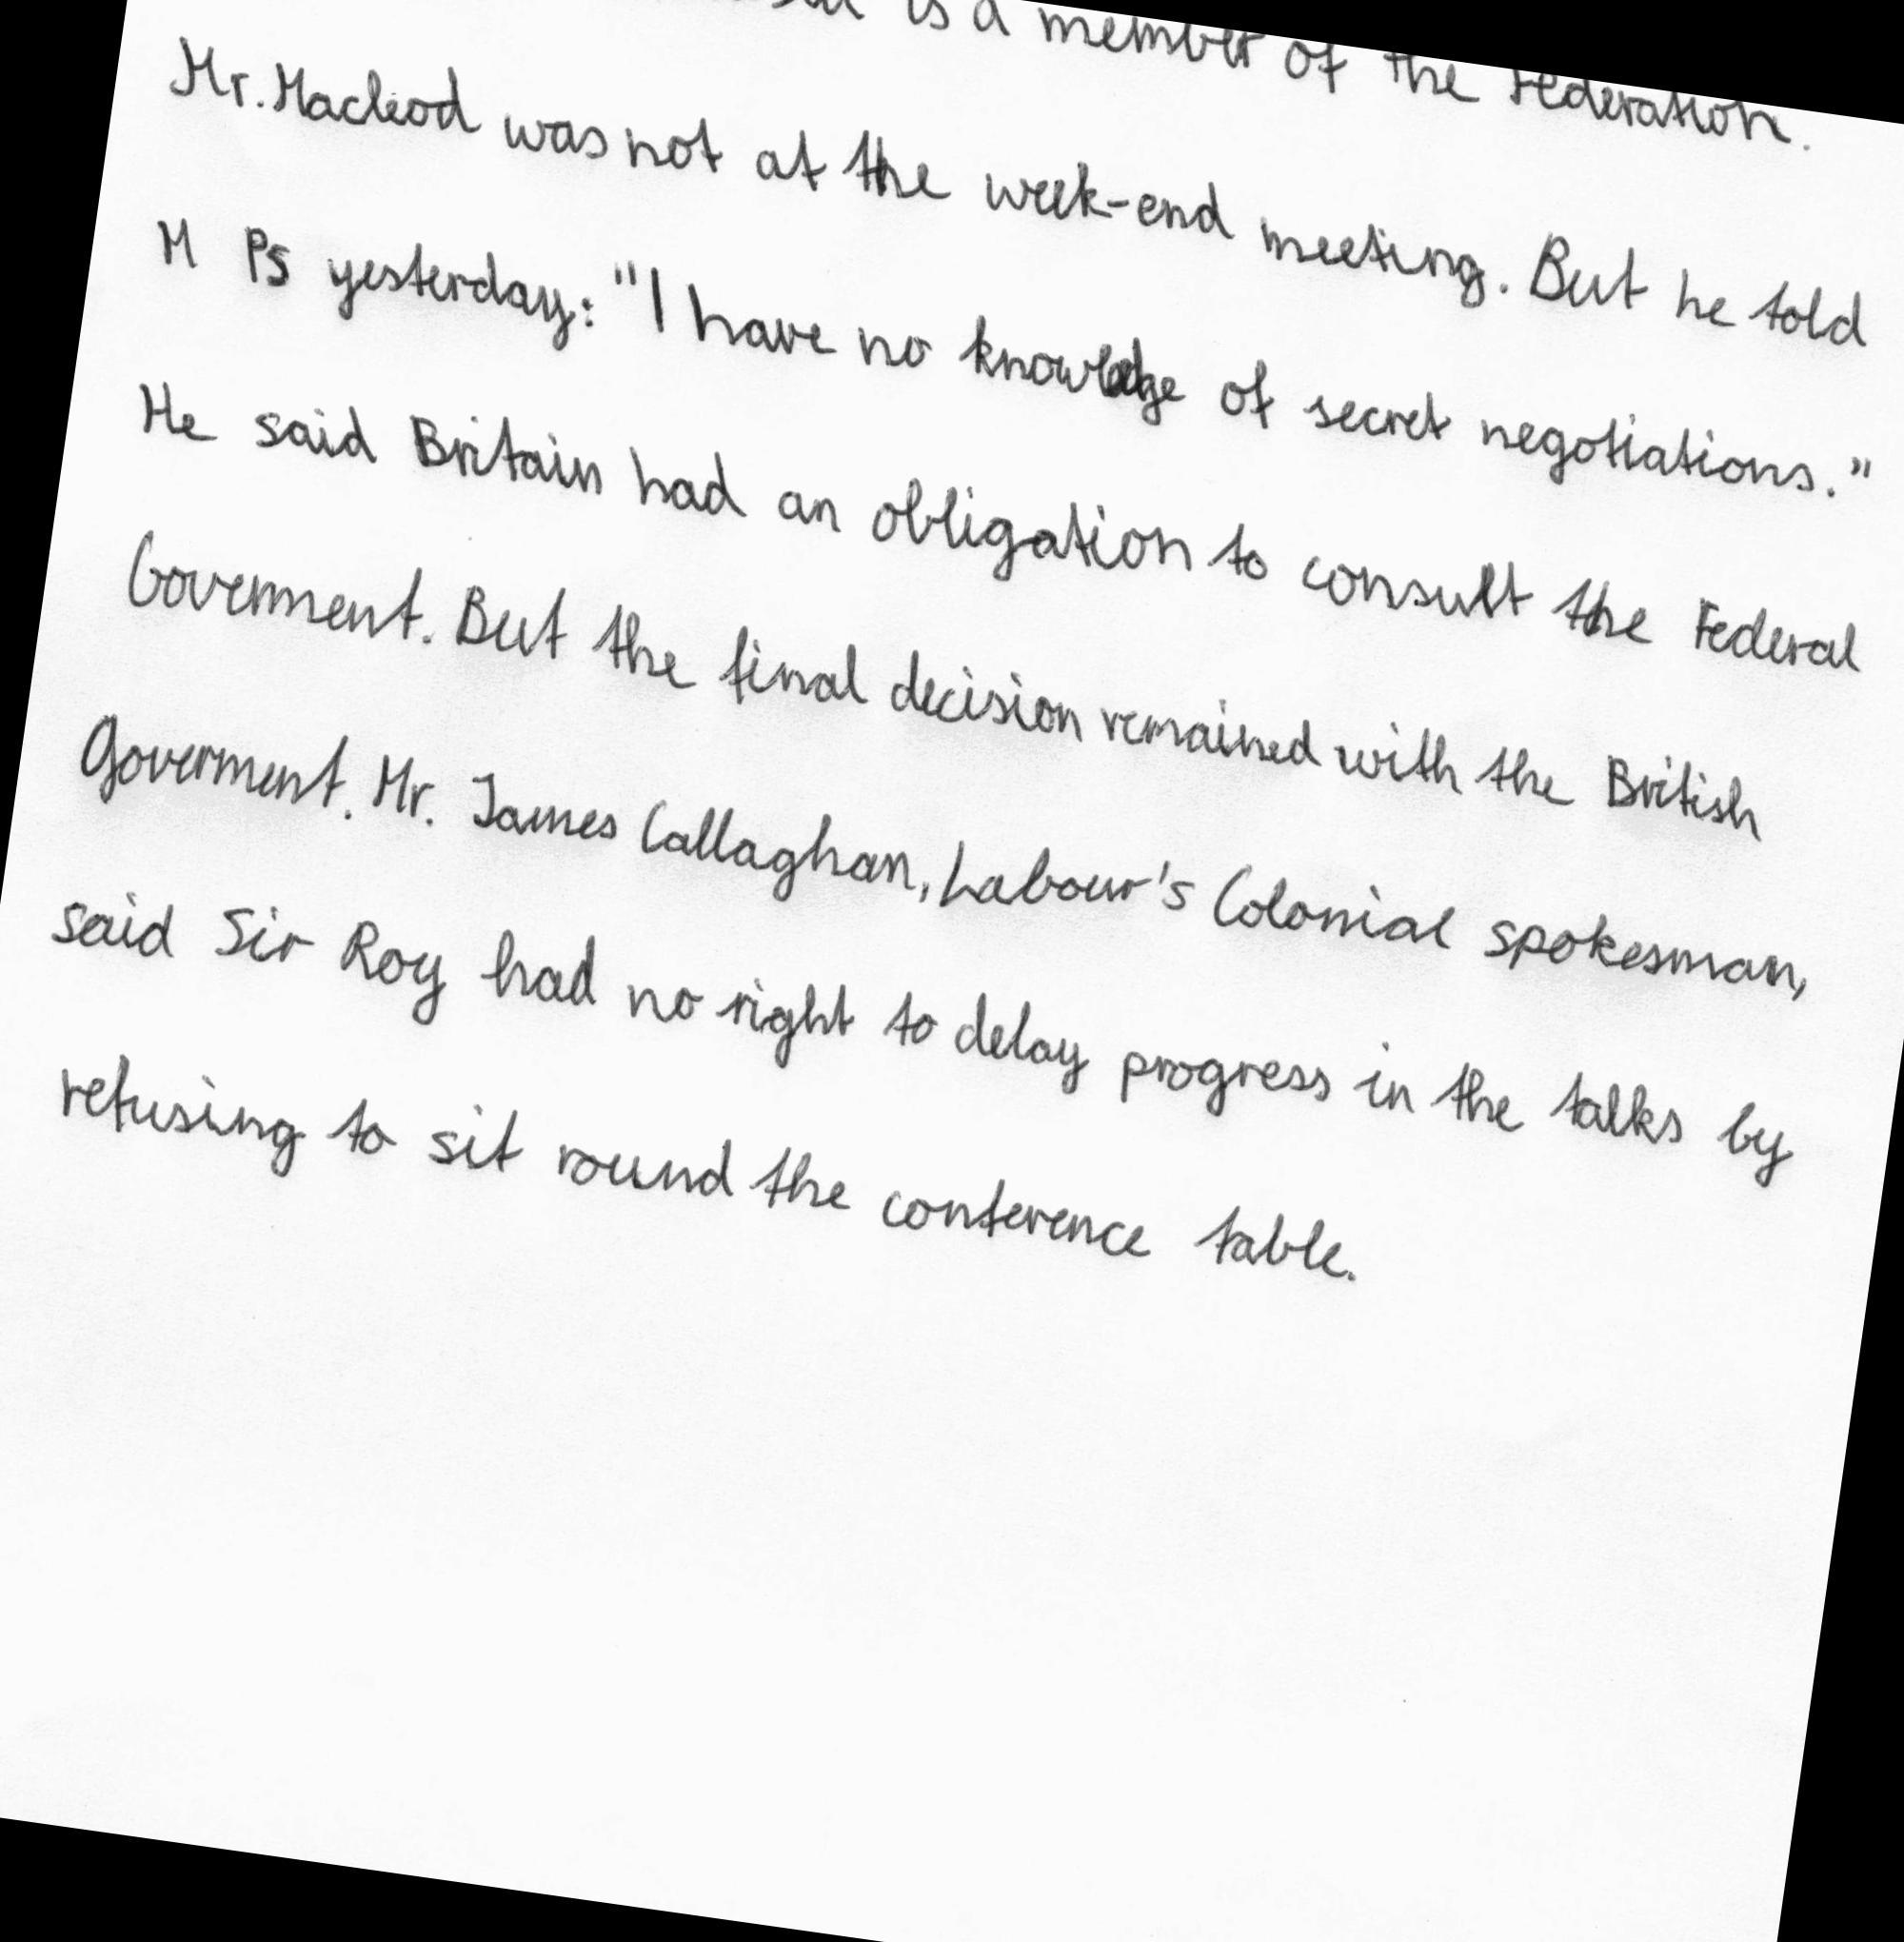 is a member of the Federation.
Mr. Macleod was not at the week-end meeting. But he told
M Ps yesterday: "I have no knowledge of secret negotiations."
He said Britain had an obligation to consult the Federal
Goverment. But the final decision remained with the British
Goverment. Mr. James Callaghan, Labour's Colonial spokesman,
said Sir Roy had no right to delay progress in the talks by
refusing to sit round the conference table.